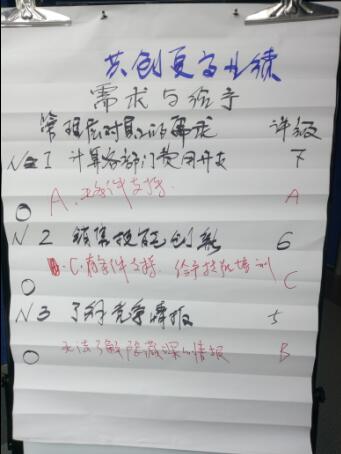 共创更高业绩
需求与给予
管理层对财务的需求 评级
N 1 计算各部门费用开支 7
A. 无条件支持. A
O
N 2 销售技能创新 6
C. 有条件支持. 给予技机培训 C
O
N 3 了解竞争情报 5
O 无法了解隐藏深的情报 B